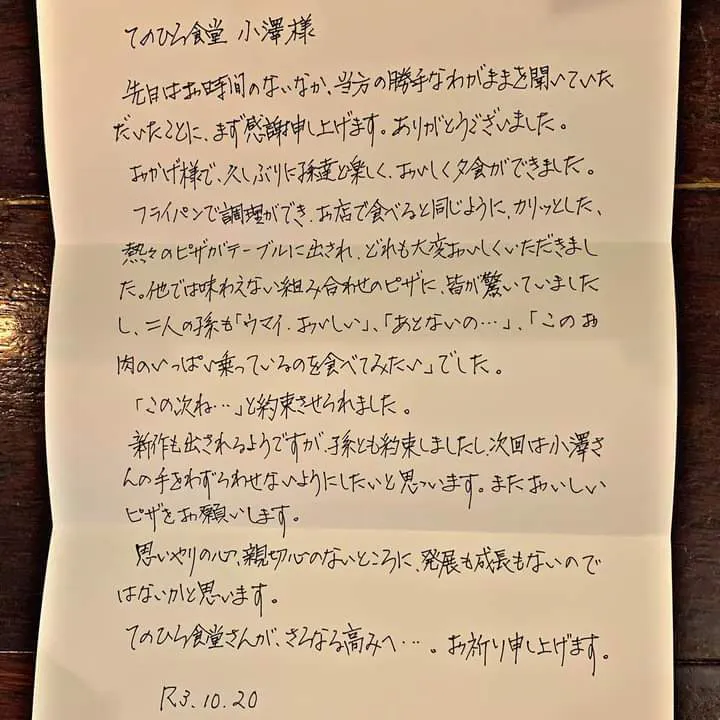 てのひら食堂 小澤様
先日はお時間のないなか、当方の勝手なわがままを聞いていた
だいたことに、まず感謝申し上げます。ありがとうございました。
おかげ様で、久しぶりに孫達と楽しく、おいしく夕食ができました。
フライパンで調理ができ、お店で食べると同じように、カリッとした、
熱々のピザがテーブルに出され、どれも大変おいしくいただきまし
た。他では味わえない組み合わせのピザに、皆が驚いていました
し、二人の孫も「ウマイ、おいしい」、「あとないの…」、「このお
肉のいっぱい乗っているのを食べてみたい」でした。
「この次ね…」と約束させられました。
新作も出されるようですが、孫とも約束しましたし、次回は小澤さ
んの手をわずらわせないようにしたいと思っています。またおいしい
ピザをお願いします。
思いやりの心、親切心のないところに、発展も成長もないので
はないかと思います。
てのひら食堂さんが、さらなる高みへ…。お祈り申し上げます。
R3.10.20